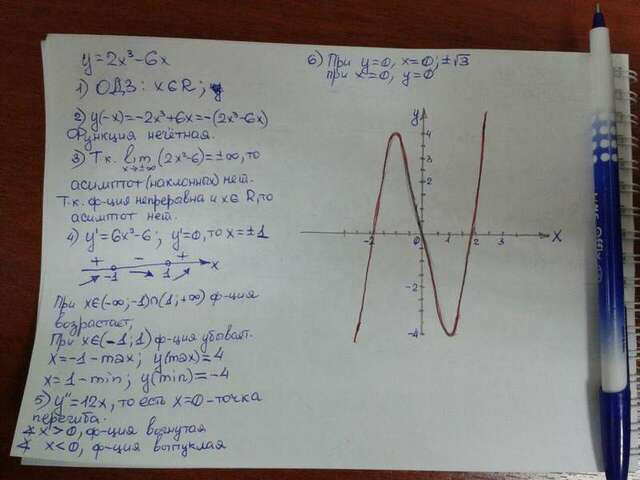 y=2x³-6x
1) ОДЗ: x∈R;
2) y(-x)=-2x³+6x=-(2x³-6x)
Функция нечётная.
3) Т.к. lim (2x²-6)=±∞, то
x→±∞
асимптот (наклонных) нет.
Т.к. ф-ция непрерывна и x∈R, то
асимптот нет.
4) y'=6x²-6; y'=0, то x=±1
+ - +
-1 1 x
При x∈(-∞;-1)∩(1;+∞) ф-ция
возрастает,
При x∈(-1;1) ф-ция убывает.
x=-1-max; y(max)=4
x=1-min; y(min)=-4
5) y''=12x, то есть x=0-точка
перегиба.
x>0, ф-ция вогнутая
x<0, ф-ция выпуклая
6) При y=0, x=0;±√3
при x=0, y=0
y
4
2
0 1 2 3 x
-2
-4